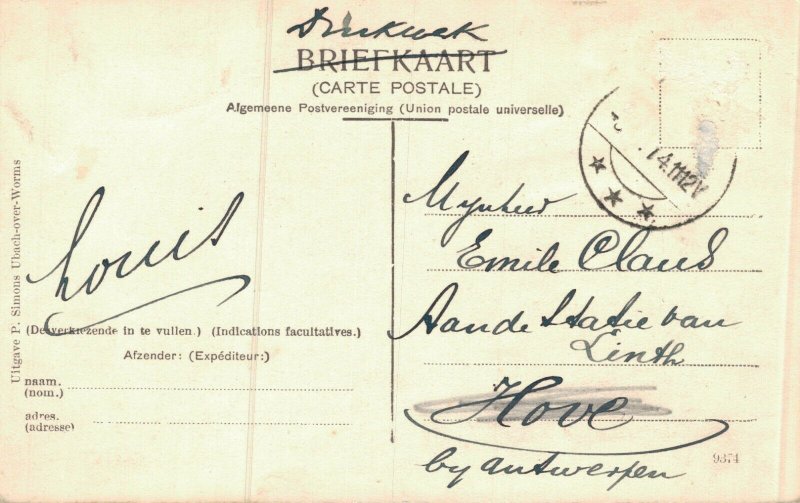 Drukwerk
BRIEFKAART
(CARTE POSTALE)
Algemeene Postvereeniging (Union postale universelle)
Uitgave P. Simons Ubach-over-Worms
4.11 12V
Louis
Mynheer
Emile Claus
Aan de Statie van
Linth
Hove
by antwerpen
(Desverkiezende in te vullen.) (Indications facultatives.)
Afzender: (Expéditeur:)
naam.
(nom.)
adres.
(adresse)
9374